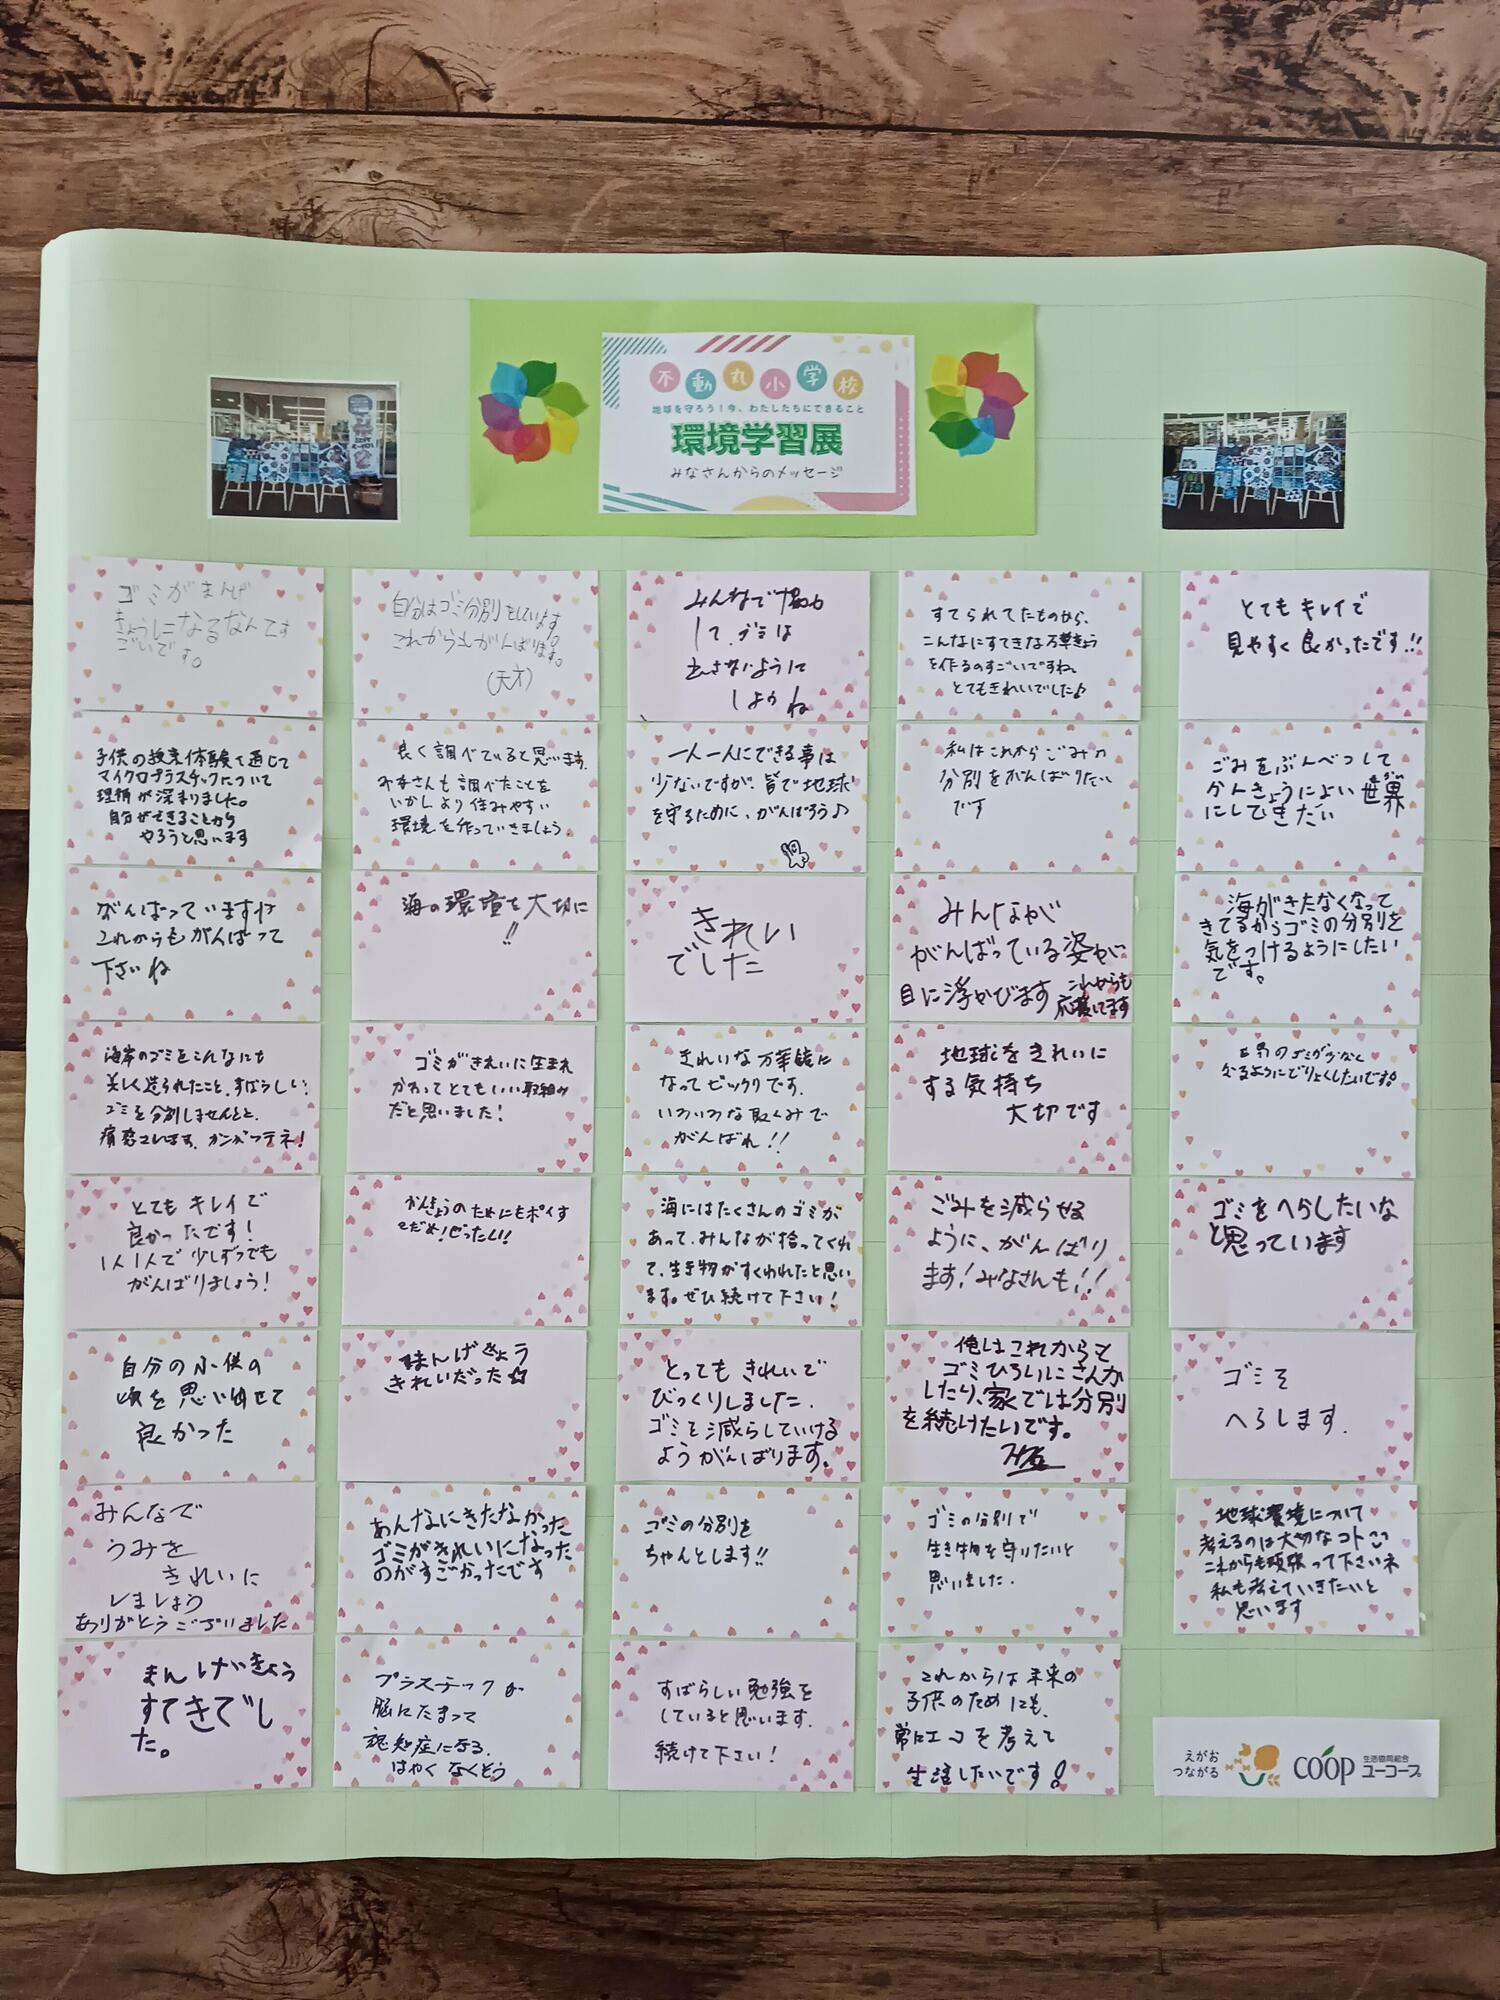 不動丸小学校
地球を守ろう！今、わたしたちにできること
環境学習展
みなさんからのメッセージ
ゴミがまんげ
きょうしになるなんてす
ごいです。
自分はゴミ分別をしています
これからもがんばります。
(天才)
みんなで協力
して、ゴミは
出さないように
しようね
すてられてたものから、
こんなにすてきな万華きょう
を作るのすごいですね。
とてもきれいでした♪
とてもキレイで
見やすく良かったです!!
子供の授業体験を通じて
マイクロプラスチックについて
理解が深まりました。
自分ができることから
やろうと思います
良く調べていると思います。
お母さんも調べたことを
いかしより住みやすい
環境を作っていきましょう。
一人一人にできる事は
少ないですが、皆で地球
を守るために、がんばろう♪
私はこれからごみの
分別をがんばりたい
です
ごみをぶんべつして
かんきょうによい世界
にしていきたい
がんばっていますね
これからもがんばって
下さいね
海の環境を大切に
!!
きれい
でした
みんなが
がんばっている姿が
目に浮かびます これからも
応援してます
海がきたなくなって
きてるからゴミの分別を
気をつけるようにしたい
です。
海岸のゴミをこんなにも
美しく造られたこと、すばらしい!
ゴミを分別しませんとと、
カンバッテネ!
ゴミがきれいに生まれ
かわってとてもいい取組み
だと思いました!
きれいな万華鏡に
なってビックリです。
いろいろな取くみで
がんばれ!!
地球をきれいに
する気持ち
大切です
世界のゴミが少なく
なるようにどりょくしたいです。
とてもキレイで
良かったです!
1人1人で少しずつでも
がんばりましょう!
かんきょうのためにもポイす
てだめ!ぜったい!!
海にはたくさんのゴミが
あって、みんなが拾ってくれ
て、生き物がすくわれたと思い
ます。ぜひ続けて下さい!
ごみを減らせる
ように、がんばり
ます!みなさんも!!
ゴミをへらしたいな
と思っています
自分の子供の
頃を思い出せて
良かった
まんげきょう
きれいだった☆
とってもきれいで
びっくりしました。
ゴミを減らしていける
ようがんばります。
俺はこれからも
ゴミひろいにさんか
したり、家では分別
を続けたいです。
ゴミを
へらします。
みんなで
うみを
きれいに
しましょう
ありがとうございました
あんなにきたなかった
ゴミがきれいになった
のがすごかったです
ゴミの分別を
ちゃんとします!!
ゴミの分別で
生き物を守りたいと
思いました.
地球環境について
考えるのは大切なコト
これからも頑張って下さいネ
私も考えていきたいと
思います
まんげきょう
すてきでし
た。
プラスチックが
脳にたまって
認知症になる.
はやくなくそう
すばらしい勉強を
していると思います.
続けて下さい!
これからは未来の
子供のためにも、
常にエコを考えて
生活したいです!
えがお
つながる
COOP
生活協同組合
ユーコープ